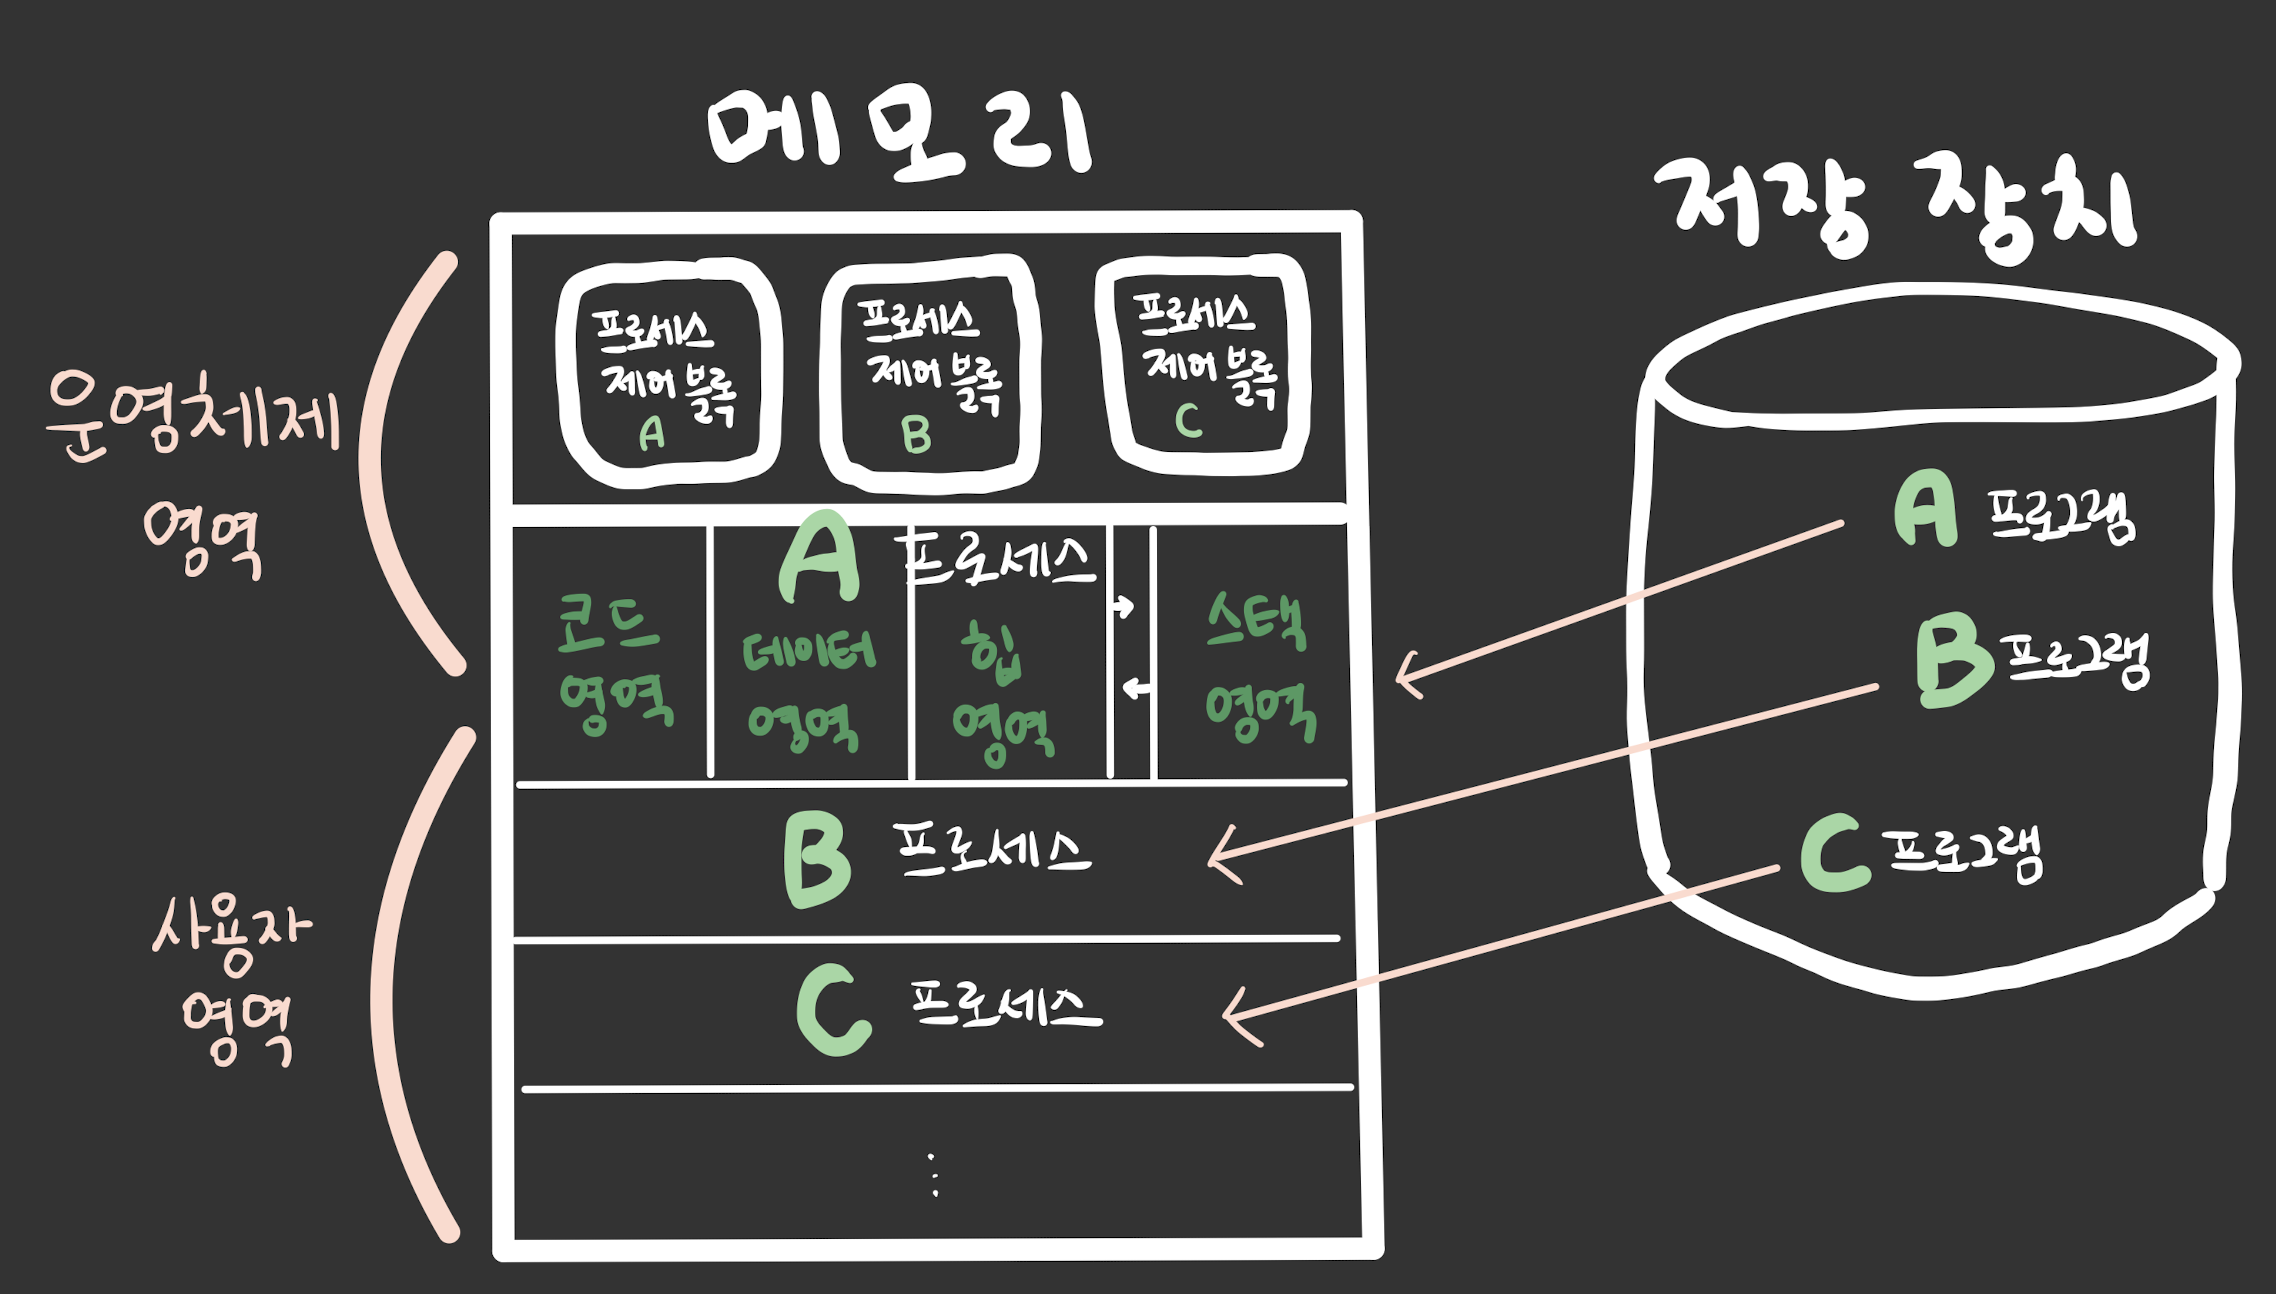 메모리
저장 장치
운영체제
영역
프로세스
제어 블록
A
프로세스
제어 블록
B
프로세스
제어 블록
C
A 프로세스
코드
영역
데이터
영역
힙
영역
스택
영역
B 프로세스
C 프로세스
⋮
사용자
영역
A 프로그램
B 프로그램
C 프로그램